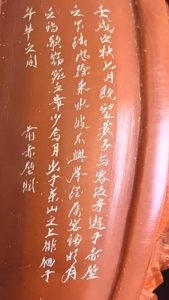 壬戌之秋七月既望蘇子与客泛舟遊于赤壁
之下清風徐来水波不興舉酒屬客誦明月
之詩歌窈窕之章少焉月出于東山之上徘徊于
斗牛之間
前赤壁賦